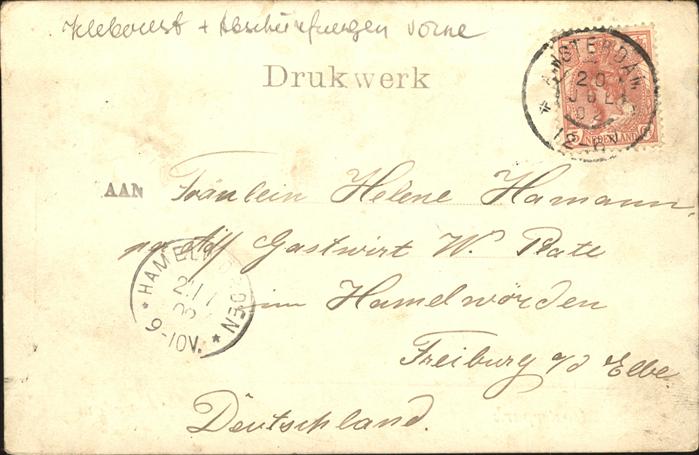 Kleberest + Abschürfungen vorne
Drukwerk
AMSTERDAM
20
JUL
02
12-1N
5 NEDERLAND
AAN Fräulein Helene Hamann,
Gastwirt W. Plate
HAMELWÖRDEN
9-10V.
im Hamelwörden
Freiburg a/d Elbe.
Deutschland.